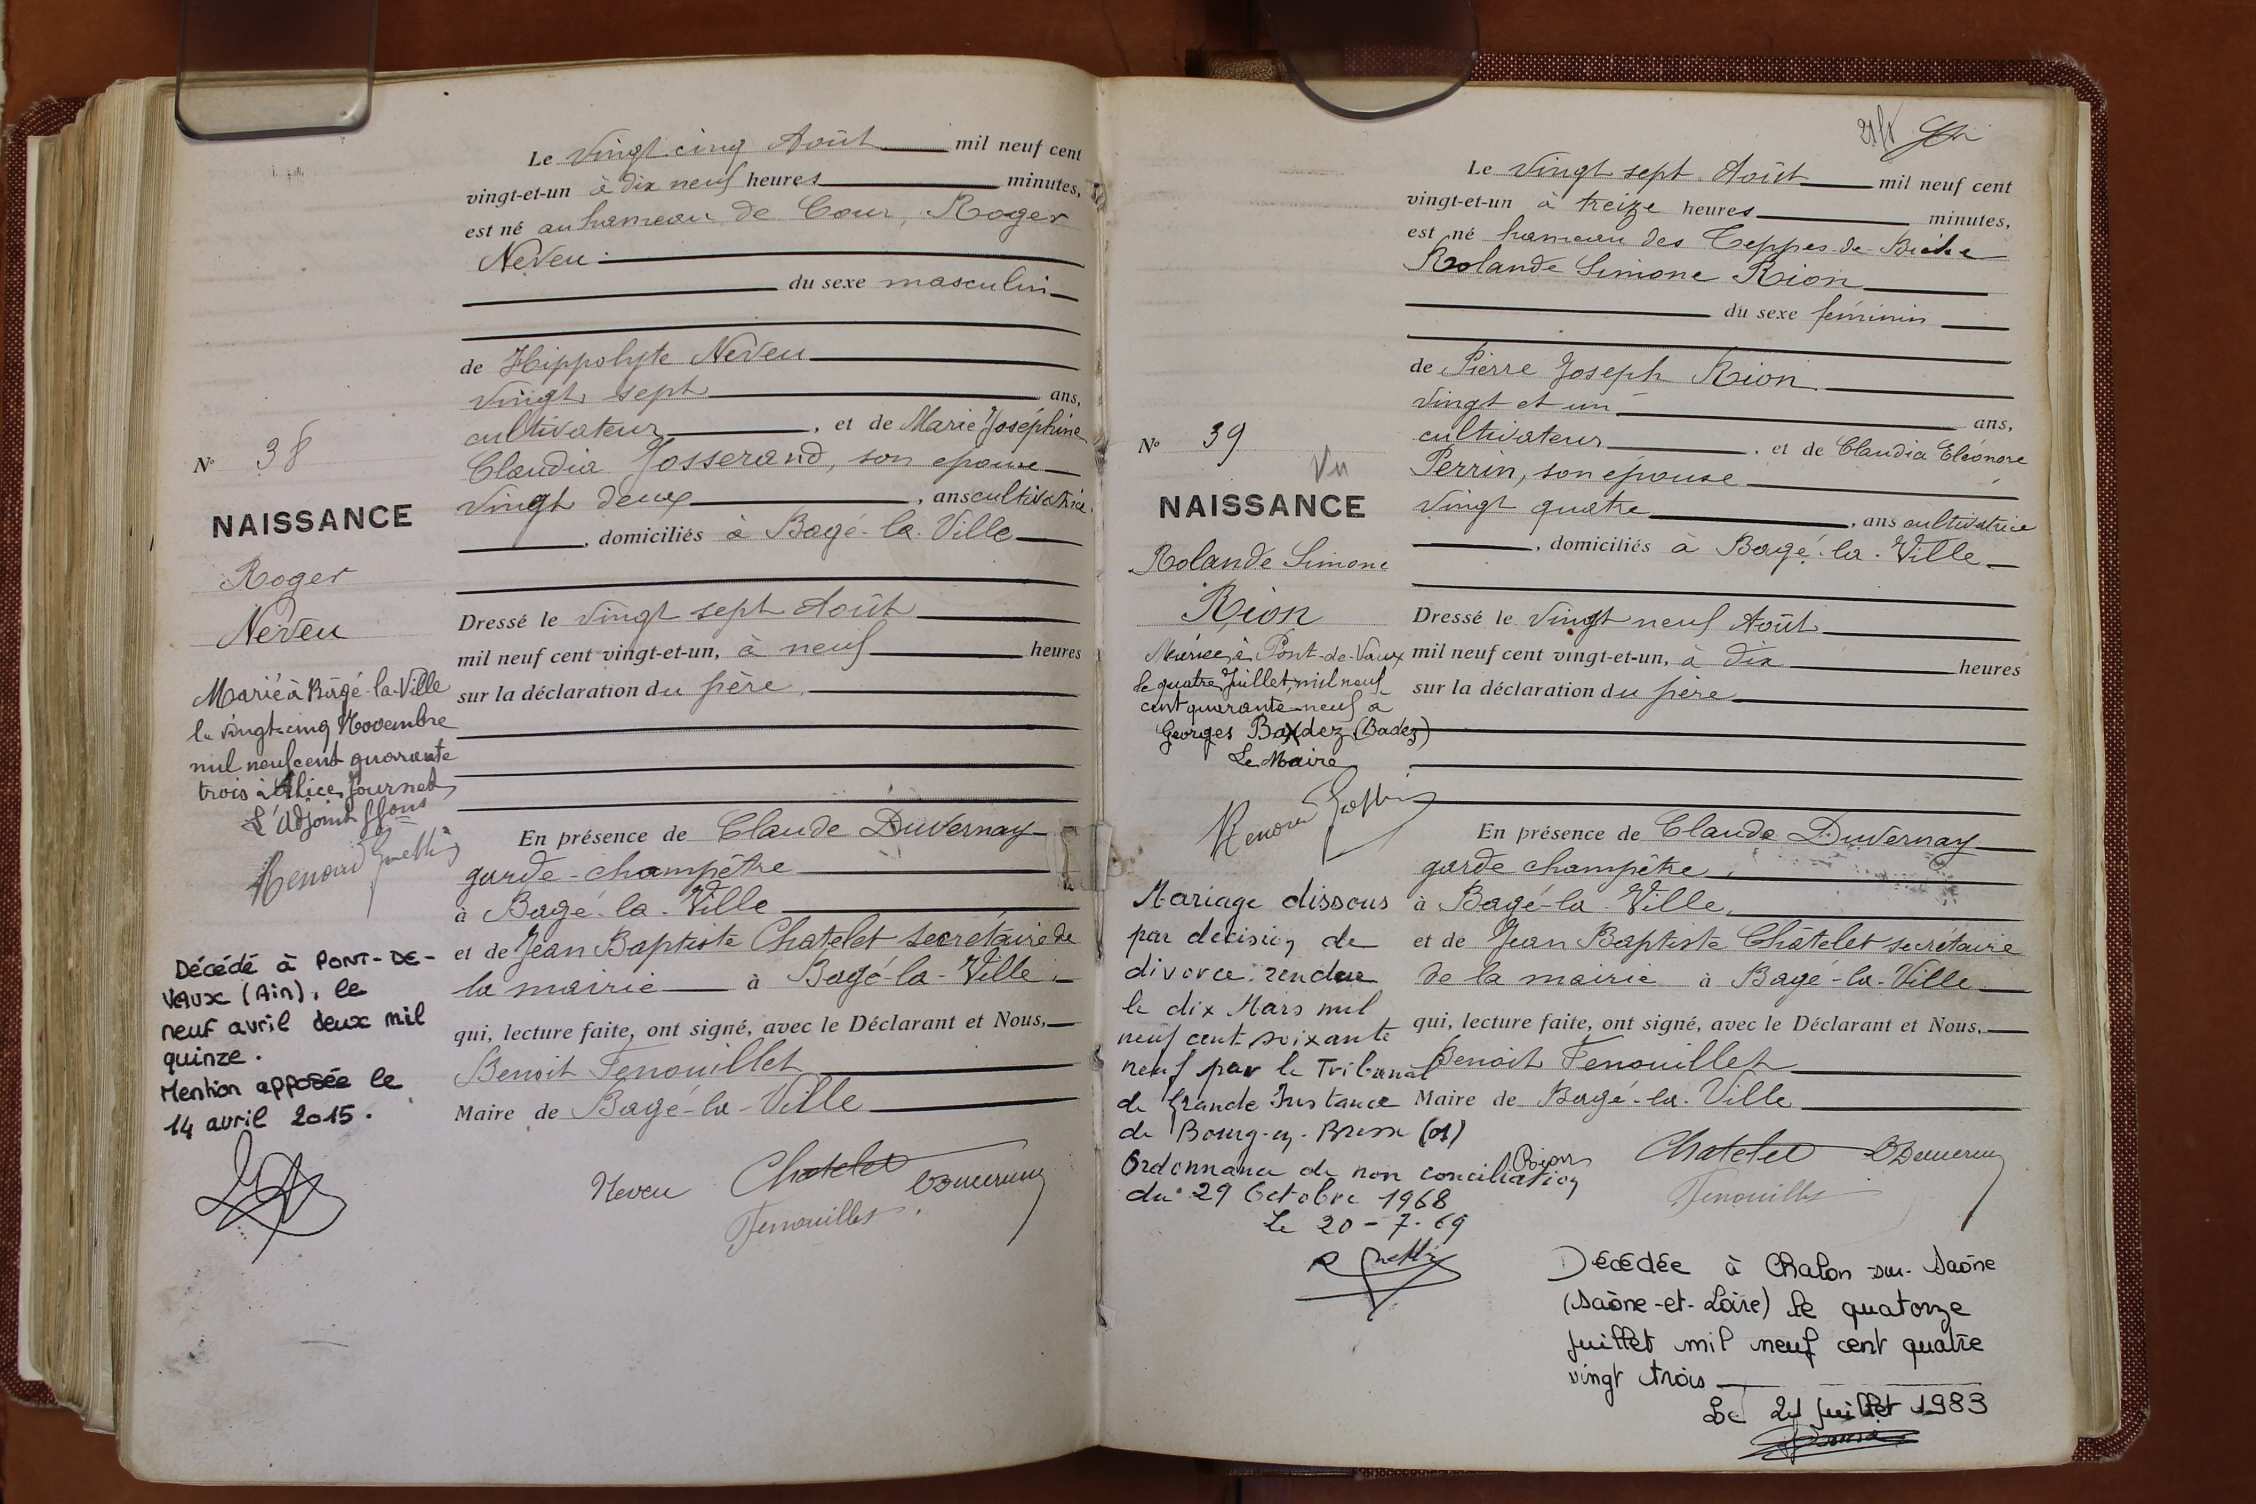 Le vingt cinq Août mil neuf cent
vingt-et-un à dix neuf heures minutes,
est né au hameau de Cour, Roger
Neveu
du sexe masculin
de Hippolyte Neveu
vingt sept ans,
cultivateur, et de Marie Joséphine
Claudia Josserand, son épouse
vingt deux, ans cultivatrice
, domiciliés à Bagé-la-Ville
Dressé le vingt sept Août
mil neuf cent vingt-et-un, à neuf heures
sur la déclaration du père
En présence de Claude Duvernay
garde-champêtre
à Bagé-la-Ville
et de Jean Baptiste Chatelet secrétaire de
la mairie à Bagé-la-Ville
qui, lecture faite, ont signé, avec le Déclarant et Nous,
Benoit Fenouillet
Maire de Bagé-la-Ville
Neveu Chatelet
Fenouillet
N° 38
NAISSANCE
Roger
Neveu
Marié à Bâgé-la-Ville
le vingt-cinq Novembre
mil neuf cent quarante
trois à Alice Journet
L'Adjoint
Décédé à PONT-DE-
VAUX (Ain), le
neuf avril deux mil
quinze.
Mention apposée le
14 avril 2015.
Le vingt sept Août mil neuf cent
vingt-et-un à treize heures minutes,
est né hameau des Teppes-de-Bièhe
Rolande Simone Rion
du sexe féminin
de Pierre Joseph Rion
vingt et un ans,
cultivateur, et de Claudia Eléonore
Perrin, son épouse
vingt quatre, ans cultivatrice
, domiciliés à Bagé-la-Ville
Dressé le vingt neuf Août
mil neuf cent vingt-et-un, à dix heures
sur la déclaration du père
En présence de Claude Duvernay
garde champêtre
à Bagé-la-Ville,
et de Jean Baptiste Châtelet secrétaire
de la mairie à Bagé-la-Ville
qui, lecture faite, ont signé, avec le Déclarant et Nous,
Benoit Fenouillet
Maire de Bagé-la-Ville
Rion Chatelet
Fenouillet
N° 39
Vu
NAISSANCE
Rolande Simone
Rion
Mariée à Pont-de-Vaux
le quatre Juillet mil neuf
cent quarante-neuf à
Georges Baxdez (Badez)
Le Maire
Mariage dissous
par decision de
divorce rendue
le dix Mars mil
neuf cent soixante
neuf par le Tribunal
de Grande Instance
de Bourg-en-Bresse (01)
Ordonnance de non conciliation
du 29 Octobre 1968
Le 20-7-69
Décédée à Chalon-sur-Saône
(Saône-et-Loire) le quatorze
juillet mil neuf cent quatre
vingt trois
Le 21 juillet 1983